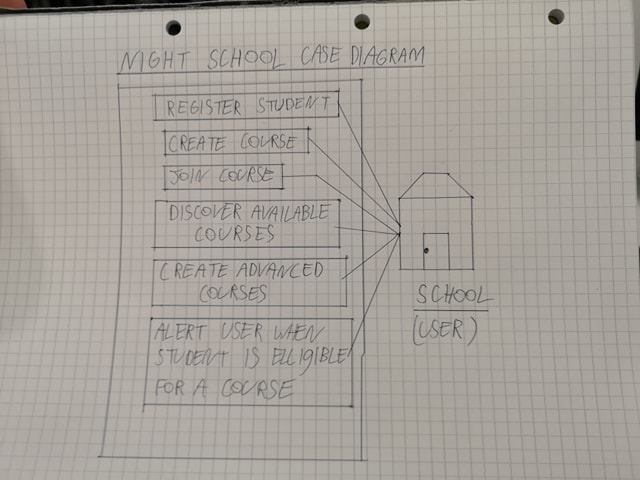 NIGHT SCHOOL CASE DIAGRAM
REGISTER STUDENT
CREATE COURSE
JOIN COURSE
DISCOVER AVAILABLE
COURSES
CREATE ADVANCED
COURSES
ALERT USER WHEN
STUDENT IS ELLIGIBLE
FOR A COURSE
SCHOOL
(USER)